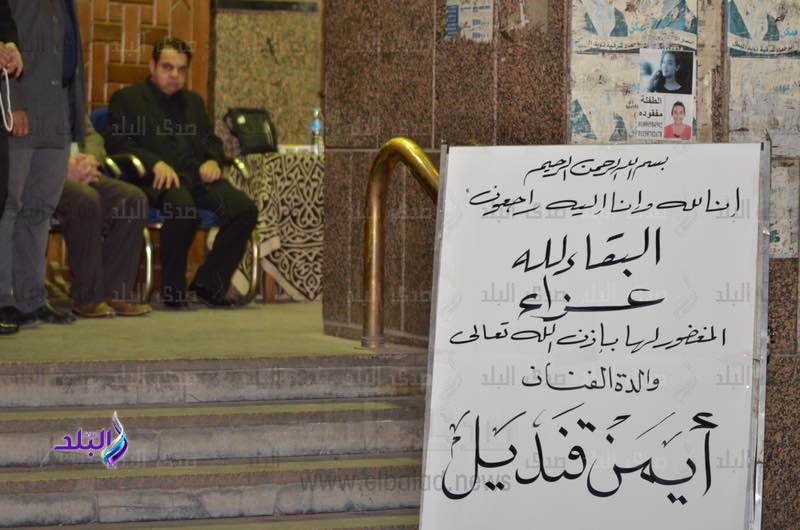 بسم الله الرحمن الرحيم
إنا لله وانا اليه راجعون
البقاء لله
عزاء
المغفور لها بإذن الله تعالى
والدة الفنان
أيمن قنديل
الطفلة
مفقوده
صدى البلد
www.elbalad.news